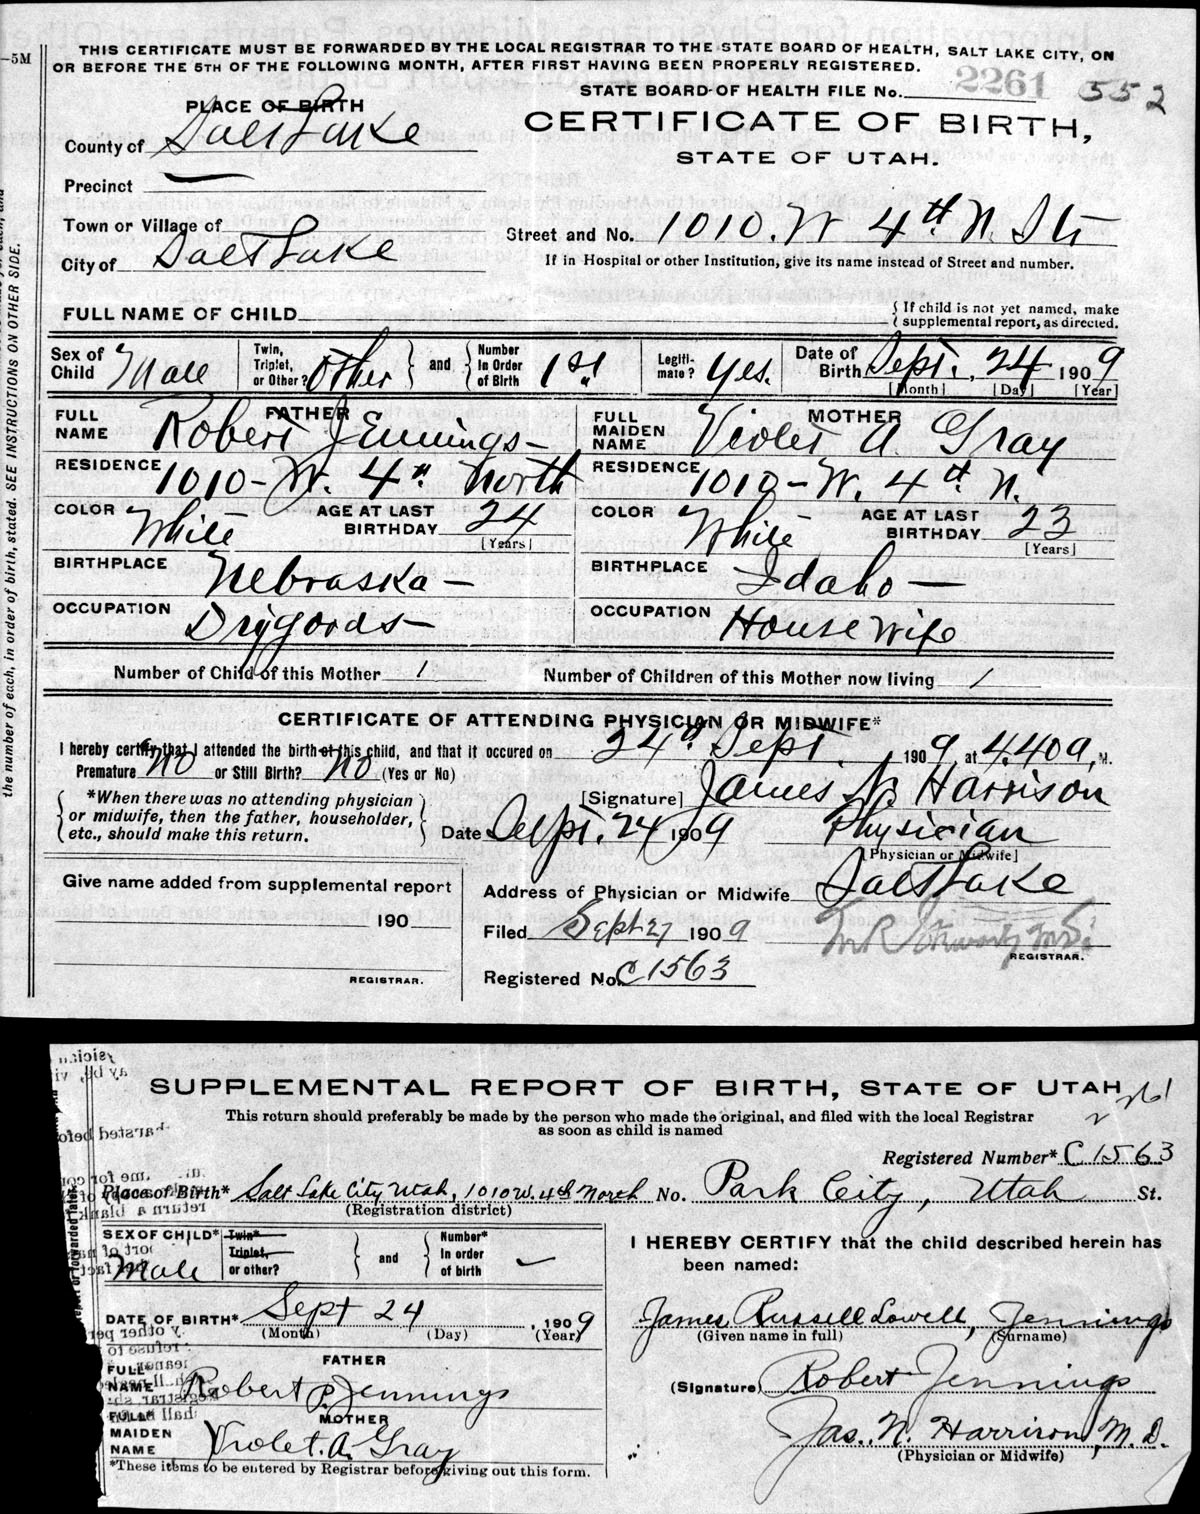 THIS CERTIFICATE MUST BE FORWARDED BY THE LOCAL REGISTRAR TO THE STATE BOARD OF HEALTH, SALT LAKE CITY, ON
OR BEFORE THE 5TH OF THE FOLLOWING MONTH, AFTER FIRST HAVING BEEN PROPERLY REGISTERED.
-5M
STATE BOARD OF HEALTH FILE No. 2261 552
PLACE OF BIRTH
CERTIFICATE OF BIRTH,
STATE OF UTAH.
County of Salt Lake
Precinct
Town or Village of
City of Salt Lake
Street and No. 1010. W 4th N. St
If in Hospital or other Institution, give its name instead of Street and number.
FULL NAME OF CHILD
{ If child is not yet named, make
supplemental report, as directed.
Sex of Child Male
Twin, Triplet, or Other? Other } and { Number in Order of Birth 1st
Legitimate? Yes.
Date of Birth Sept. 24 1909
[Month] [Day] [Year]
FATHER
FULL NAME Robert Jennings-
RESIDENCE 1010-W. 4th North
COLOR White AGE AT LAST BIRTHDAY 24
[Years]
BIRTHPLACE Nebraska-
OCCUPATION Drygoods-
MOTHER
FULL MAIDEN NAME Violet A Gray
RESIDENCE 1010-W. 4th N.
COLOR White AGE AT LAST BIRTHDAY 23
[Years]
BIRTHPLACE Idaho-
OCCUPATION Housewife
Number of Child of this Mother 1
Number of Children of this Mother now living 1
CERTIFICATE OF ATTENDING PHYSICIAN OR MIDWIFE*
I hereby certify that I attended the birth of this child, and that it occured on 24th Sept. 1909, at 4.40 a, M.
Premature No or Still Birth? No (Yes or No)
[Signature] James N. Harrison
{ *When there was no attending physician
or midwife, then the father, householder,
etc., should make this return. }
Date Sept. 24 1909
Physician
[Physician or Midwife]
Address of Physician or Midwife Salt Lake
Give name added from supplemental report
190
REGISTRAR.
Filed Sept 27 1909
REGISTRAR.
Registered No. C1563
the number of each, in order of birth, stated. SEE INSTRUCTIONS ON OTHER SIDE.
SUPPLEMENTAL REPORT OF BIRTH, STATE OF UTAH
2261
This return should preferably be made by the person who made the original, and filed with the local Registrar
as soon as child is named
Registered Number* C1563
Place of Birth* Salt Lake City Utah, 1010 W. 4th North No. Park City, Utah St.
(Registration district)
SEX OF CHILD* Male
Twin* Triplet, or other? } and { Number* in order of birth
DATE OF BIRTH* Sept 24, 1909
(Month) (Day) (Year)
FATHER
FULL* NAME Robert P. Jennings
MOTHER
FULL* MAIDEN NAME Violet. A. Gray
*These items to be entered by Registrar before giving out this form.
I HEREBY CERTIFY that the child described herein has
been named:
James Russell Lowell, Jennings
(Given name in full) (Surname)
(Signature) Robert Jennings
Jas. N. Harrison, M. D.
(Physician or Midwife)